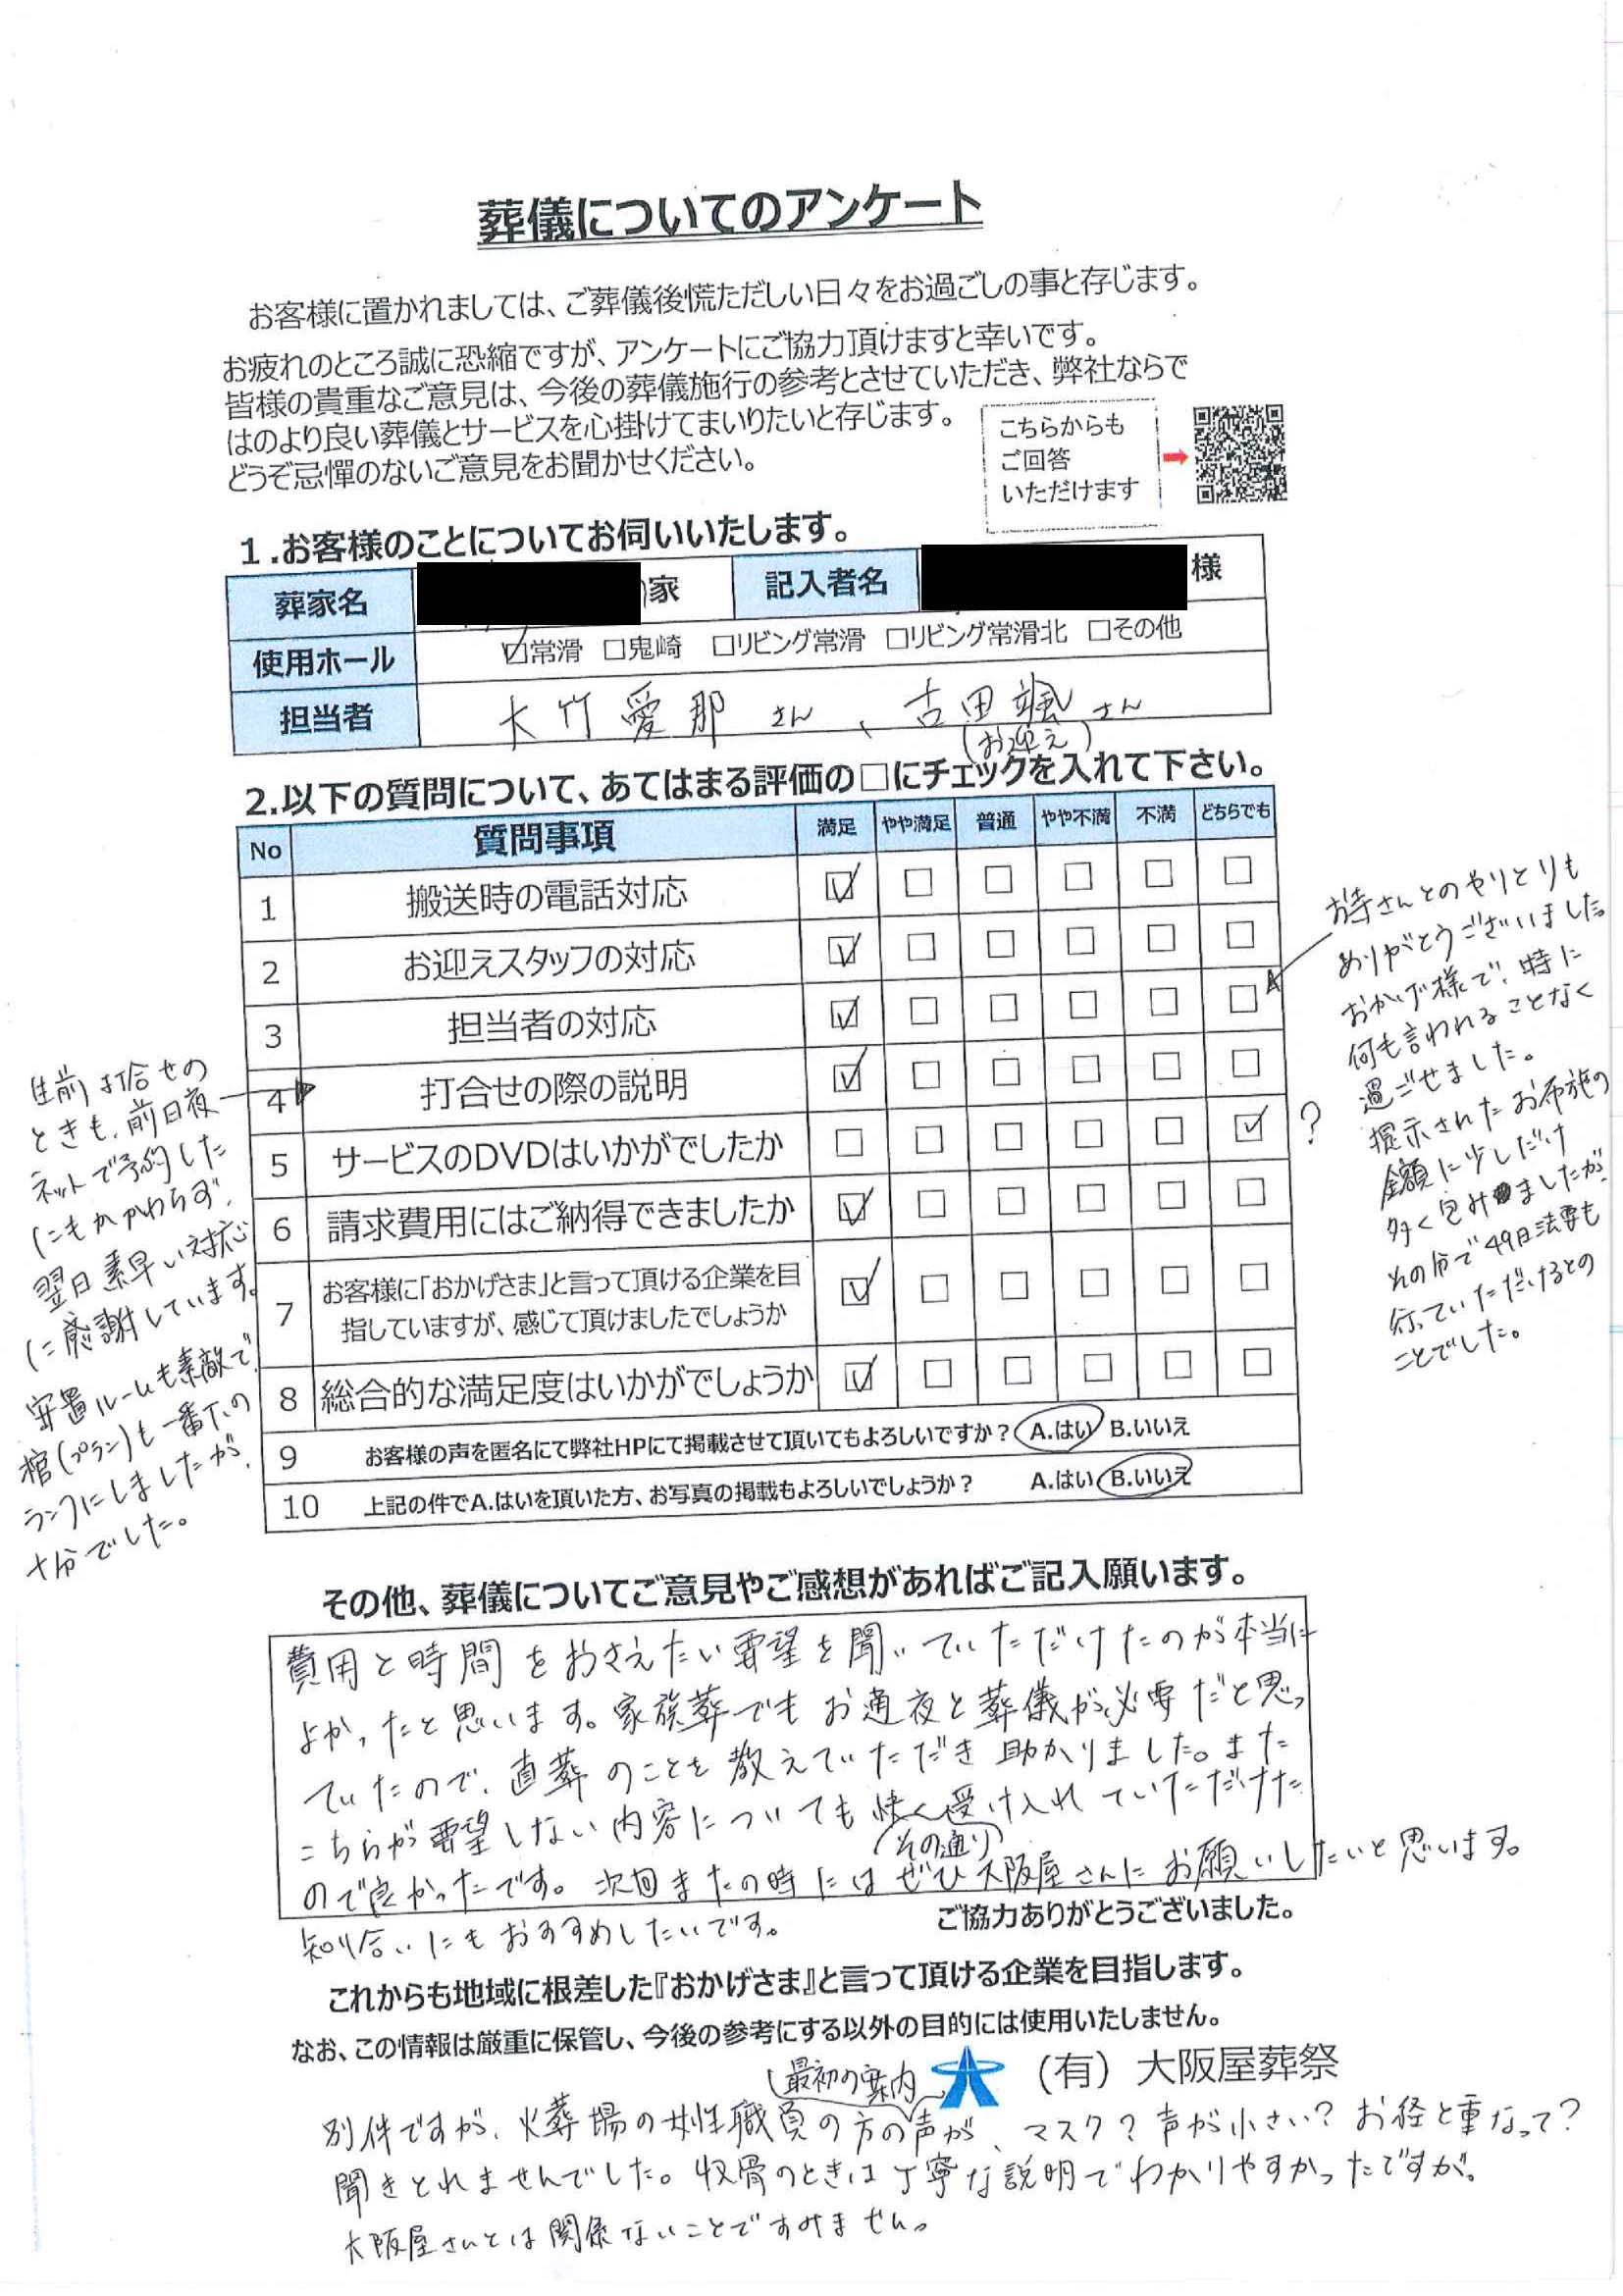 葬儀についてのアンケート
お客様に置かれましては、ご葬儀後慌ただしい日々をお過ごしの事と存じます。
お疲れのところ誠に恐縮ですが、アンケートにご協力頂けますと幸いです。
皆様の貴重なご意見は、今後の葬儀施行の参考とさせていただき、弊社ならで
はのより良い葬儀とサービスを心掛けてまいりたいと存じます。
どうぞ忌憚のないご意見をお聞かせください。
こちらからも
ご回答
いただけます
1.お客様のことについてお伺いいたします。
葬家名 家 記入者名 様
使用ホール ☑常滑 □鬼崎 □リビング常滑 □リビング常滑北 □その他
担当者 大竹愛那さん、古田颯さん
(お迎え)
2.以下の質問について、あてはまる評価の□にチェックを入れて下さい。
No 質問事項 満足 やや満足 普通 やや不満 不満 どちらでも
1 搬送時の電話対応 ☑ □ □ □ □ □
2 お迎えスタッフの対応 ☑ □ □ □ □ □
3 担当者の対応 ☑ □ □ □ □ □
4 打合せの際の説明 ☑ □ □ □ □ □
5 サービスのDVDはいかがでしたか □ □ □ □ □ ☑ ?
6 請求費用にはご納得できましたか ☑ □ □ □ □ □
7 お客様に「おかげさま」と言って頂ける企業を目
指していますが、感じて頂けましたでしょうか ☑ □ □ □ □ □
8 総合的な満足度はいかがでしょうか ☑ □ □ □ □ □
9 お客様の声を匿名にて弊社HPにて掲載させて頂いてもよろしいですか? A.はい B.いいえ
10 上記の件でA.はいを頂いた方、お写真の掲載もよろしいでしょうか? A.はい B.いいえ
お寺さんとのやりとりも
ありがとうございました。
おかげ様で、特に
何も言われることなく
過ごせました。
提示されたお布施の
金額に少しだけ
多く包みましたが、
その分で49日法要も
行っていただけるとの
ことでした。
生前打合せの
ときも、前日夜
ネットで予約した
にもかかわらず、
翌日素早い対応
に感謝しています。
安置ルームも素敵で、
棺(プラン)も一番下の
ランクにしましたが、
十分でした。
その他、葬儀についてご意見やご感想があればご記入願います。
費用と時間をおさえたい要望を聞いていただけたのが本当に
よかったと思います。家族葬でもお通夜と葬儀が必要だと思っ
ていたので、直葬のことを教えていただき助かりました。また
こちらが要望しない内容についても快く受け入れていただけた
(その通り)
ので良かったです。次回またの時にはぜひ大阪屋さんにお願いしたいと思います。
知り合いにもおすすめしたいです。
ご協力ありがとうございました。
これからも地域に根差した『おかげさま』と言って頂ける企業を目指します。
なお、この情報は厳重に保管し、今後の参考にする以外の目的には使用いたしません。
(有)大阪屋葬祭
最初の案内
別件ですが、火葬場の女性職員の方の声が、マスク?声が小さい?お経と重なって?
聞きとれませんでした。収骨のときは丁寧な説明でわかりやすかったですが。
大阪屋さんとは関係ないことですみません。